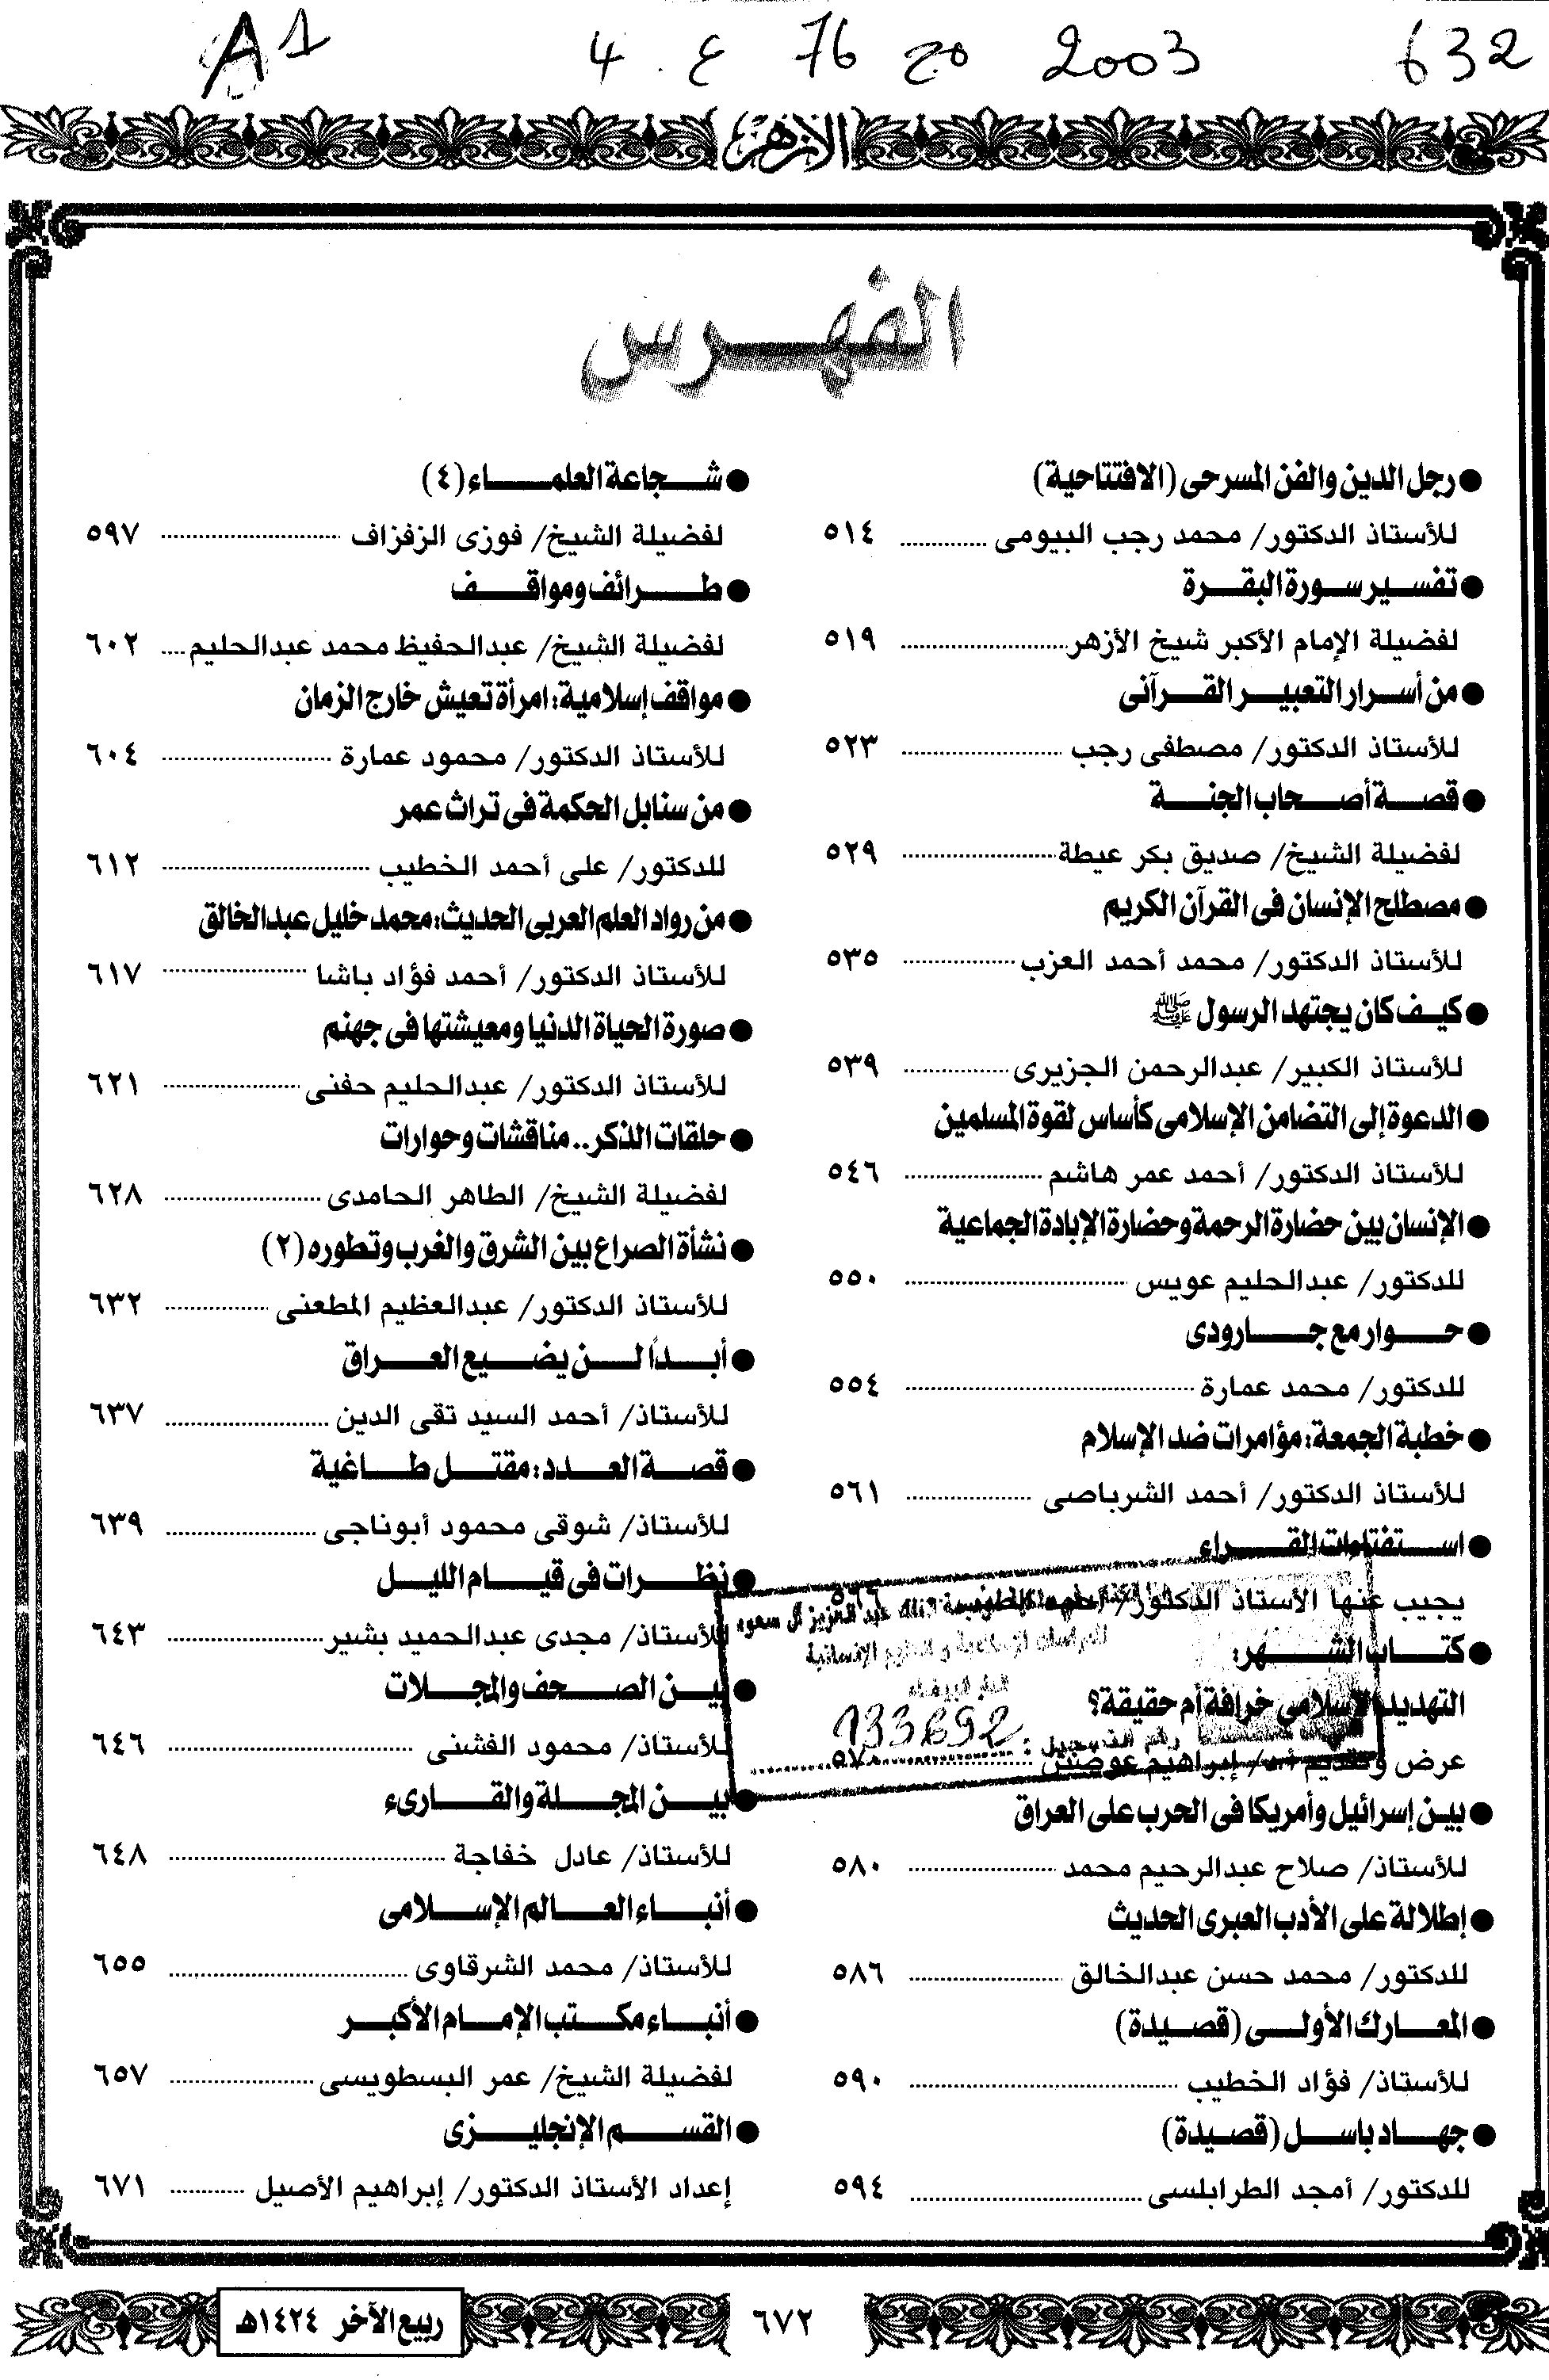 A1 4 ع. 76 مج 2003 632
الأزهر
الفهرس
● رجل الدين والفن المسرحى (الافتتاحية)
للأستاذ الدكتور/ محمد رجب البيومى ............ ٥١٤
● تفسير سورة البقرة
لفضيلة الإمام الأكبر شيخ الأزهر ............ ٥١٩
● من أسرار التعبير القرآنى
للأستاذ الدكتور/ مصطفى رجب ............ ٥٢٣
● قصة أصحاب الجنة
لفضيلة الشيخ/ صديق بكر عيطة ............ ٥٢٩
● مصطلح الإنسان فى القرآن الكريم
للأستاذ الدكتور/ محمد أحمد العزب ............ ٥٣٥
● كيف كان يجتهد الرسول ﷺ
للأستاذ الكبير/ عبدالرحمن الجزيرى ............ ٥٣٩
● الدعوة إلى التضامن الإسلامى كأساس لقوة المسلمين
للأستاذ الدكتور/ أحمد عمر هاشم ............ ٥٤٦
● الإنسان بين حضارة الرحمة وحضارة الإبادة الجماعية
للدكتور/ عبدالحليم عويس ............ ٥٥٠
● حوار مع جارودى
للدكتور/ محمد عمارة ............ ٥٥٤
● خطبة الجمعة: مؤامرات ضد الإسلام
للأستاذ الدكتور/ أحمد الشرباصى ............ ٥٦١
● استفتاءات القراء
يجيب عنها الأستاذ الدكتور/ ٥٦٦
● كتاب الشهر:
التهديد الإسلامى خرافة أم حقيقة؟
عرض وتقديم أ.د/ إبراهيم عوضين ............ ٥٧٠
● بين إسرائيل وأمريكا فى الحرب على العراق
للأستاذ/ صلاح عبدالرحيم محمد ............ ٥٨٠
● إطلالة على الأدب العبرى الحديث
للدكتور/ محمد حسن عبدالخالق ............ ٥٨٦
● المعارك الأولى (قصيدة)
للأستاذ/ فؤاد الخطيب ............ ٥٩٠
● جهاد باسل (قصيدة)
للدكتور/ أمجد الطرابلسى ............ ٥٩٤
● شجاعة العلماء (٤)
لفضيلة الشيخ/ فوزى الزفزاف ............ ٥٩٧
● طرائف ومواقف
لفضيلة الشيخ/ عبدالحفيظ محمد عبدالحليم .... ٦٠٢
● مواقف إسلامية: امرأة تعيش خارج الزمان
للأستاذ الدكتور/ محمود عمارة ............ ٦٠٤
● من سنابل الحكمة فى تراث عمر
للدكتور/ على أحمد الخطيب ............ ٦١٢
● من رواد العلم العربى الحديث: محمد خليل عبدالخالق
للأستاذ الدكتور/ أحمد فؤاد باشا ............ ٦١٧
● صورة الحياة الدنيا ومعيشتها فى جهنم
للأستاذ الدكتور/ عبدالحليم حفنى ............ ٦٢١
● حلقات الذكر.. مناقشات وحوارات
لفضيلة الشيخ/ الطاهر الحامدى ............ ٦٢٨
● نشأة الصراع بين الشرق والغرب وتطوره (٢)
للأستاذ الدكتور/ عبدالعظيم المطعنى ............ ٦٣٢
● أبداً لن يضيع العراق
للأستاذ/ أحمد السيد تقى الدين ............ ٦٣٧
● قصة العدد: مقتل طاغية
للأستاذ/ شوقى محمود أبوناجى ............ ٦٣٩
● نظرات فى قيام الليل
للأستاذ/ مجدى عبدالحميد بشير ............ ٦٤٣
● بين الصحف والمجلات
للأستاذ/ محمود الفشنى ............ ٦٤٦
● بين المجلة والقارىء
للأستاذ/ عادل خفاجة ............ ٦٤٨
● أنباء العالم الإسلامى
للأستاذ/ محمد الشرقاوى ............ ٦٥٥
● أنباء مكتب الإمام الأكبر
لفضيلة الشيخ/ عمر البسطويسى ............ ٦٥٧
● القسم الإنجليزى
إعداد الأستاذ الدكتور/ إبراهيم الأصيل ............ ٦٧١
الملك عبد العزيز آل سعود
للدراسات الإسلامية والعلوم الإنسانية
الدار البيضاء
رقم التسجيل: 133692
٦٧٢
ربيع الآخر ١٤٢٤هـ